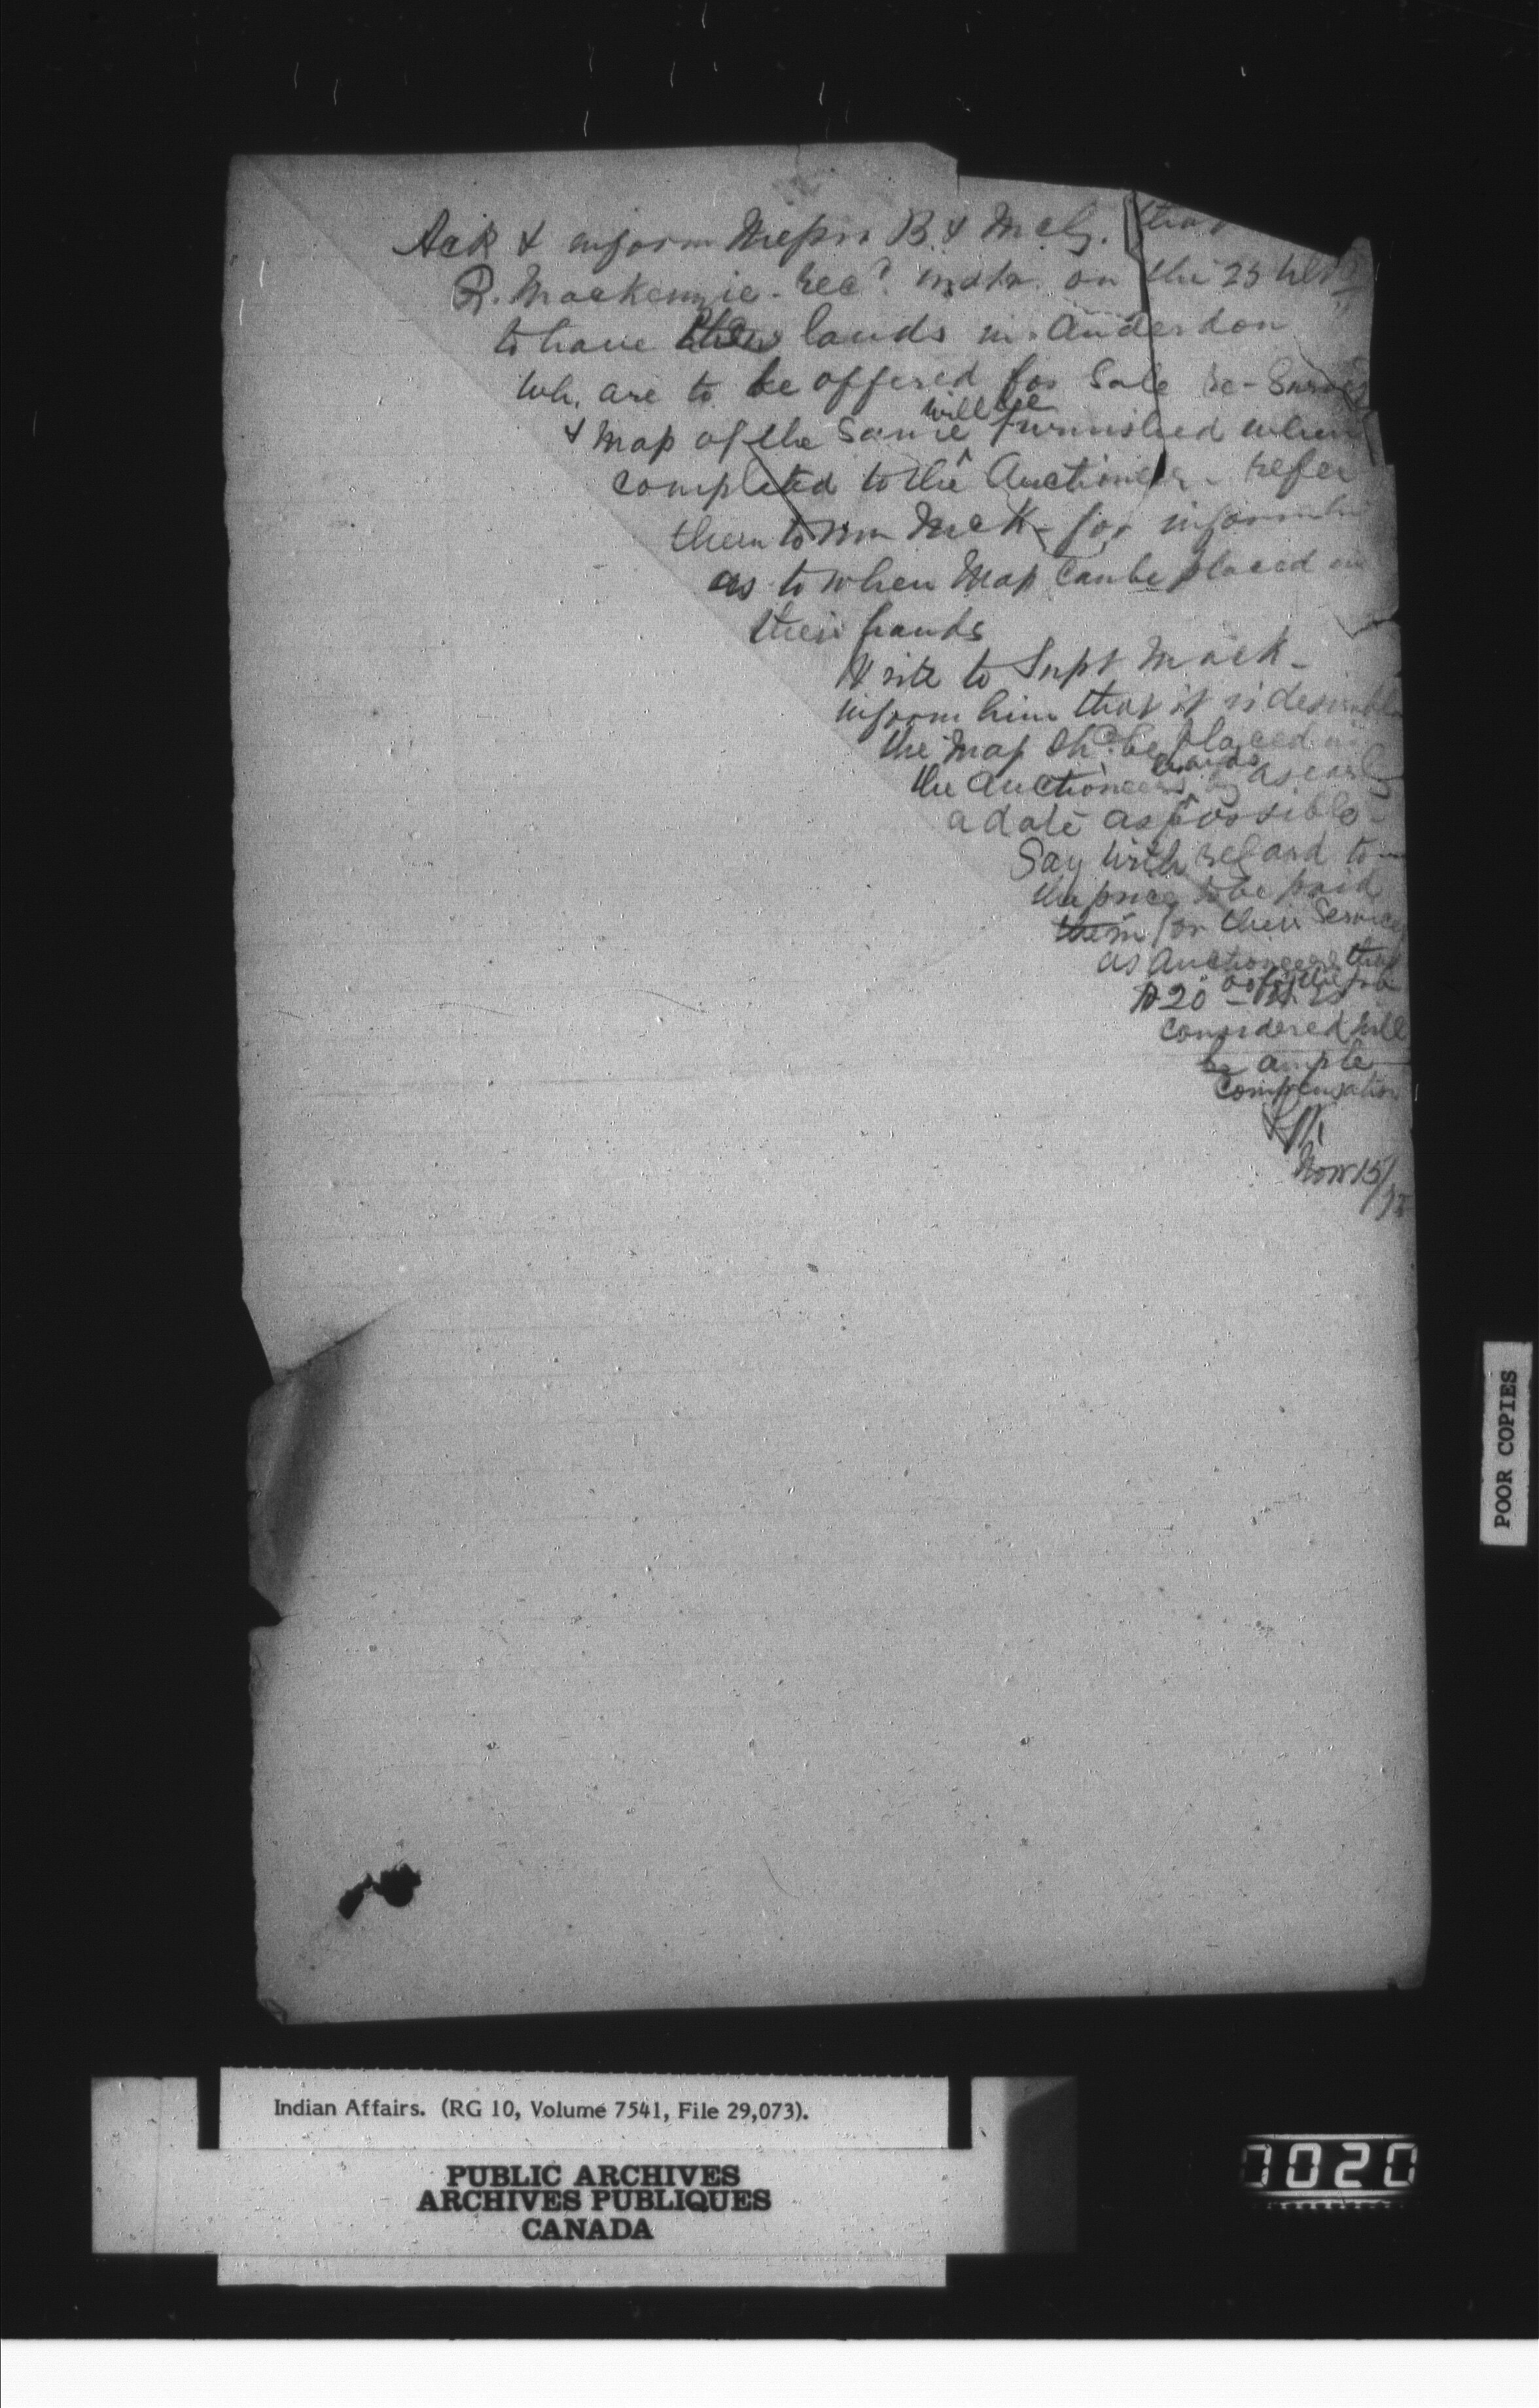 Ack & inform Messrs B. & McG. that
R. Mackenzie recd instr. on the 25 ulto
to have the lands in Anderdon
wh. are to be offered for Sale re-Survey
& map of the same will be furnished when
completed to the Auctioneer - refer
them to Mr McK - for informati
as to when Map can be placed in
their hands
Write to Supt Mack -
inform him that it is desirable
the map shd be placed in
the Auctioneers hands as early
a date as possible -
Say with regard to
the price to be paid
them for their Services
as Auctioneers that
$20 - as for the
considered will
be ample
compensation
Nov 15/
POOR COPIES
Indian Affairs. (RG 10, Volume 7541, File 29,073).
PUBLIC ARCHIVES
ARCHIVES PUBLIQUES
CANADA
0020